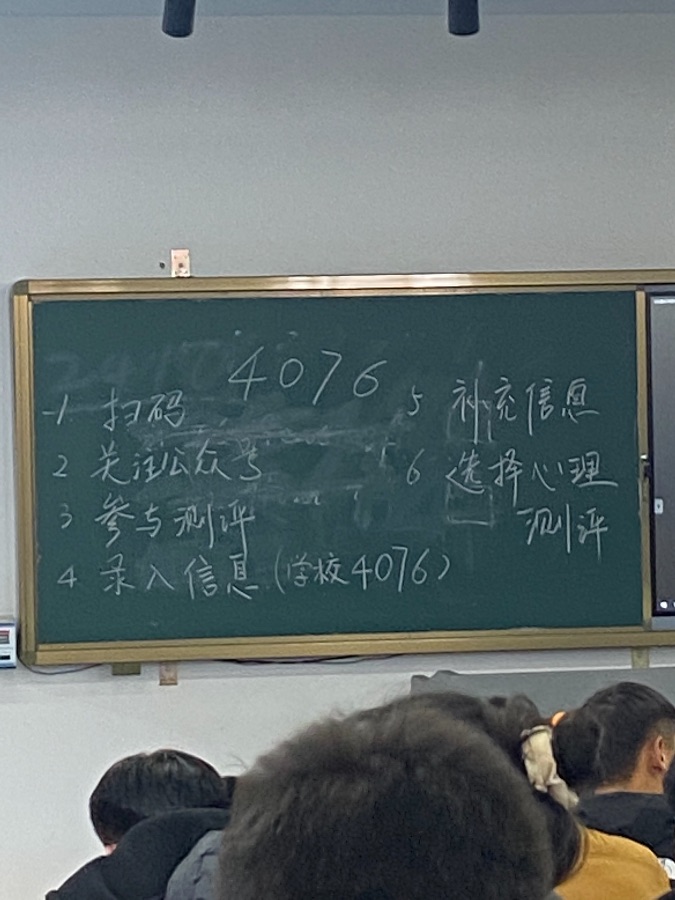 4076
1 扫码
2 关注公众号
3 参与测评
4 录入信息(学校4076)
5 补充信息
6 选择心理
测评